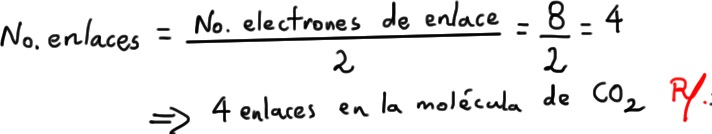 No. enlaces = No. electrones de enlace / 2 = 8/2 = 4
⇒ 4 enlaces en la molécula de CO₂ R/.